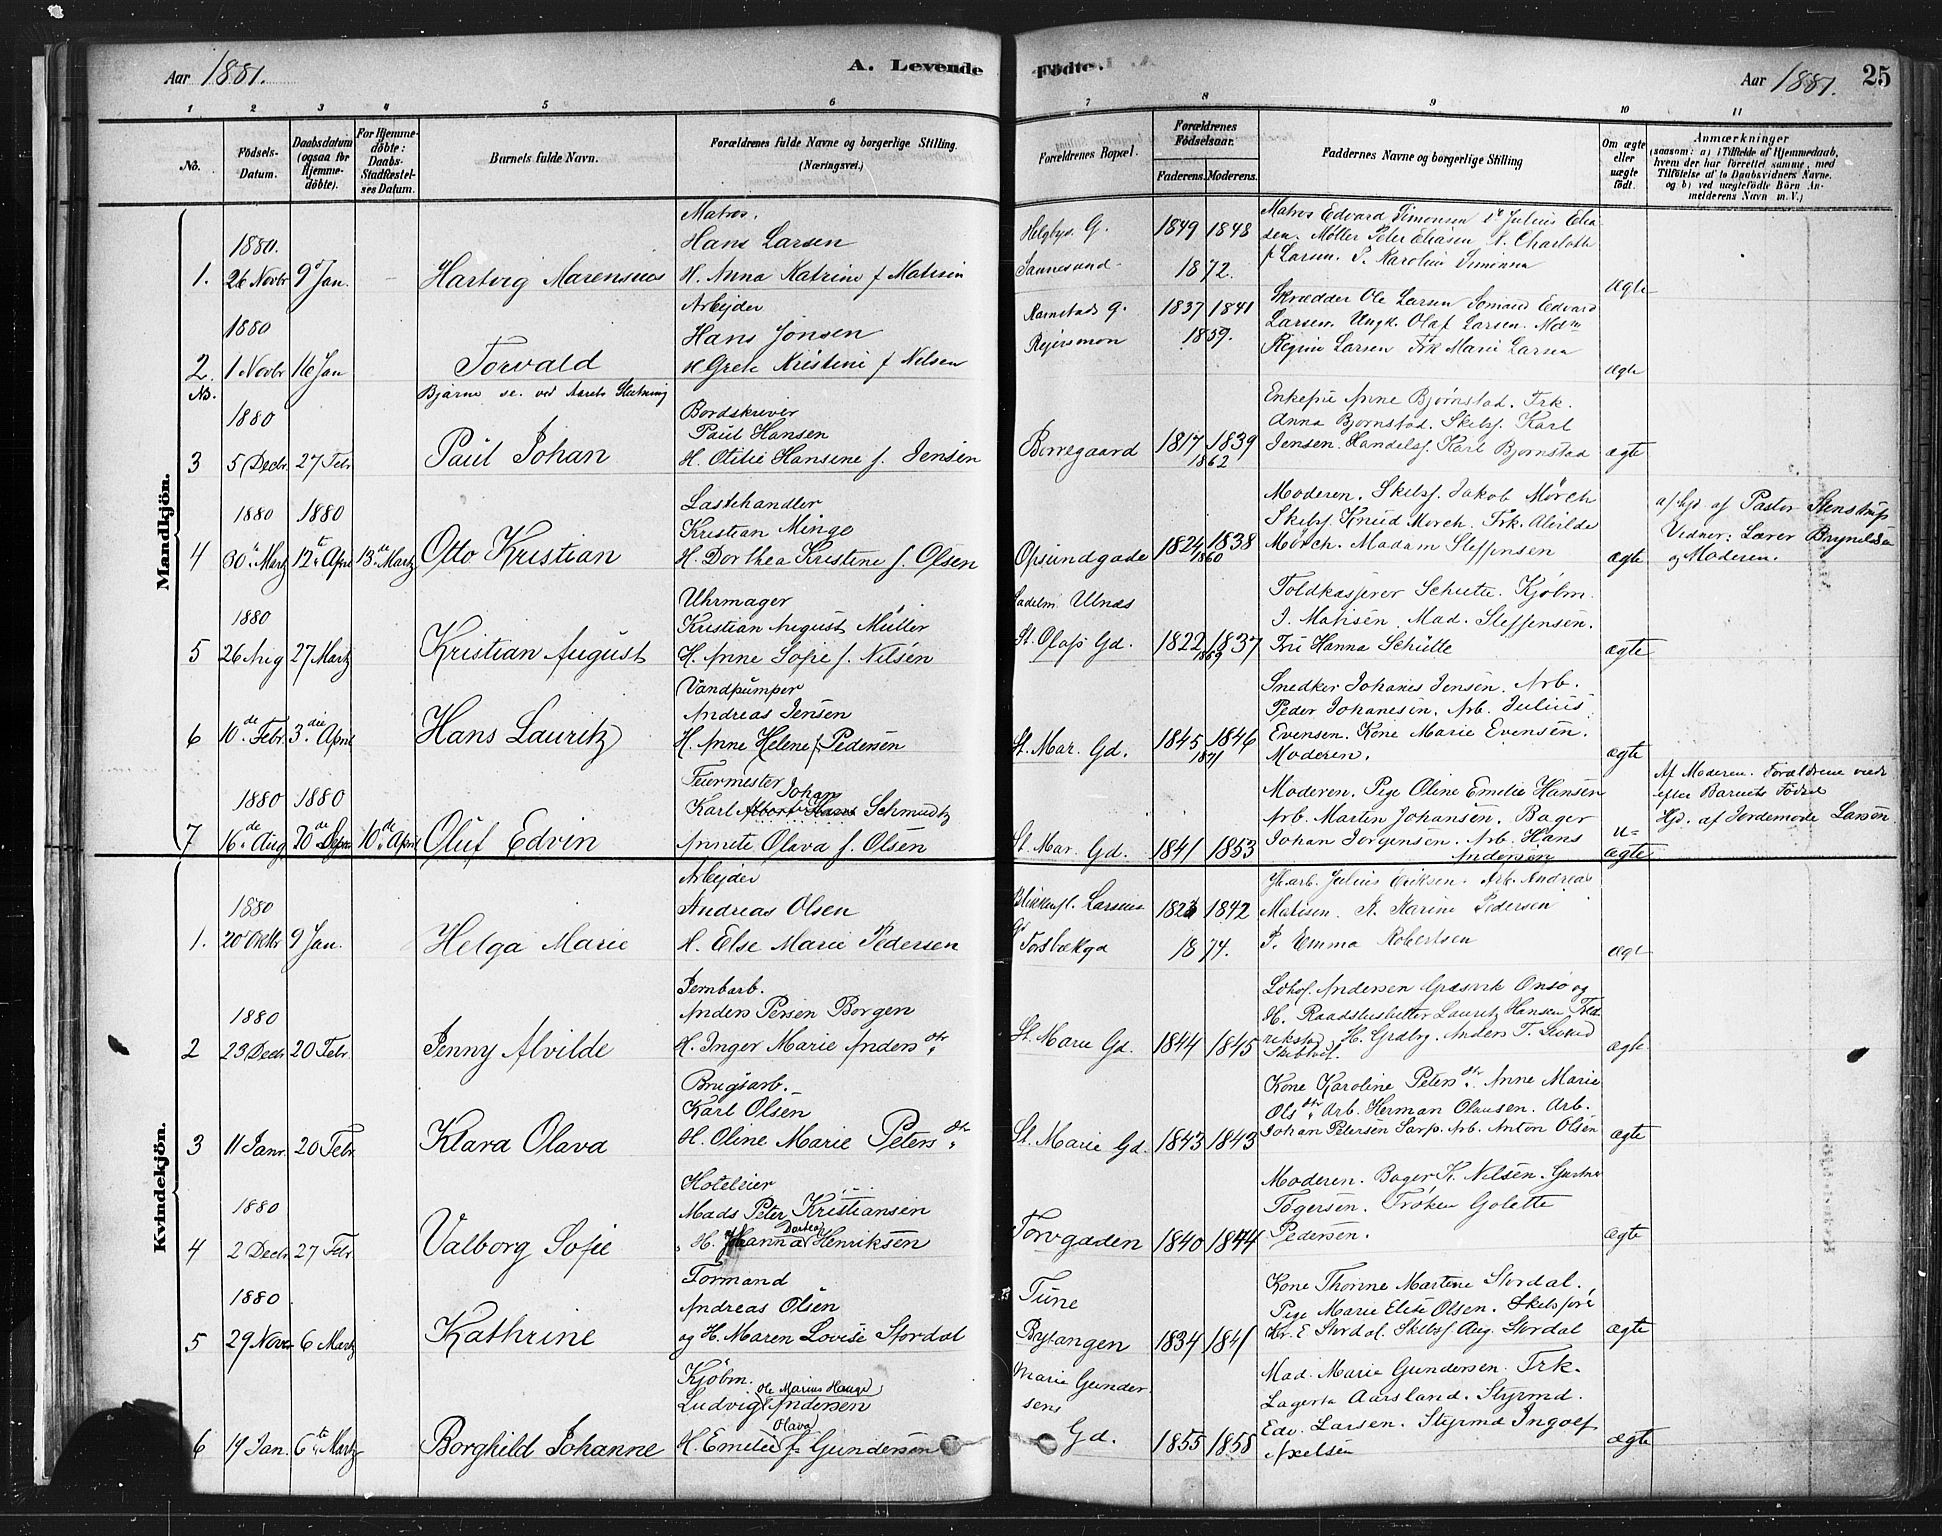 Aar 1881.
A. Levende
Fødte.
Aar 1881. 25
1 2 3 4 5 6
No.
Fødsels-Datum.
Daabsdatum (ogsaa for Hjemmedöbte).
For Hjemmedöbte: Daabs-Stadfæstelses Datum.
Barnets fulde Navn.
Forældrenes fulde Navne og borgerlige Stilling. (Næringsvei.)
7 8 9 10 11
Forældrenes Bopæl.
Forældrenes Födselsaar.
Faderens. Moderens.
Faddernes Navne og borgerlige Stilling
Om ægte eller uægte født.
Anmærkninger
(saasom: a) i Tilfælde af Hjemmedaab, hvem der har forrettet samme, med Tilföielse af to Daabsvidners Navne. og b) ved uægtefödte Börn Anmelderens Navn m. V.)
Mandkjön.
1. 1880. 26 Novbr 9 Jan. Hartvig Marensius
Matros.
Hans Larsen
H. Anna Katrine f Matisen
Helgbys. G.
Sannesund
1849 1848
1872.
Matros Edvard Simonsen Julius Elia
sen. Møller Peter Eliasen K. Charlotte
f Larsen. P. Karoline
Ægte
2. 1880 1 Novbr 16 Jan Torvald
Arbejder
Hans Jonsen
H Grete Kristine f Nilsen
Ramstads G.
Rejersmon
1837 1841
1859.
Skrædder Ole Larsen Sømand Edvard
Larsen. Ungk. Olaf Larsen. Mdm
Regine Larsen Frk Marie Larsen
ægte
NB. Bjarne se. ved Aarets Slutning
3 1880 5 Decbr. 27 Febr. Paul Johan
Bordskriver
Paul Hansen
H. Otilie Hansene f. Jensen
Borregaard
1817 1839
1862
Enkefru Anne Bjørnstad. Frk.
Anna Bjornstad. Skibsf. Karl
Jensen. Handelsf. Karl Bjornstad
ægte
4 1880 30te Martz 1880 12te April 13de Martz Otto Kristian
Lastehandler
Kristian Minge
H. Dorthea Kristine f. Olsen
Opsundgade
1824 1838
1860
Moderen. Skibsf. Jakob Mørch
Skibsf. Knud Mørch. Frk. Alvilde
Mørch. Madam Steffensen
ægte
af Pastor Stenstrup
Vidner: Lærer Brynildsen
og Moderen.
5 1880 26 Aug 27 Martz Kristian August
Uhrmager
Kristian August Müller
H. Anne Sofie f. Nilsen
Sadelm. Ulnæs
St. Olafs Gd.
1822 1837
1869
Toldkasserer Schutte. Kjøbm.
J. Matisen. Mad. Steffensen.
Fru Hanna Schütte
ægte
6 10de Febr. 3die April Hans Lauritz
Vandpumper
Andreas Jensen
H. Anne Helene f. Pedersen
St. Mar. Gd.
1845 1846
1871
Snedker Johanes Jensen. Arb.
Peder Johanesen. Arb. Julius
Evensen. Kone Marie Evensen.
Moderen.
ægte
7 1880 16de Aug. 1880 20de Septbr 10de April Oluf Edvin
Feiermester
Karl Johan Schmultz
Annete Olava f. Olsen
St. Mar. Gd.
1841 1853
Moderen. Pige Oline Emelie Hansen
Arb. Martin Johansen. Bager
Johan Jorgensen. Arb. Hans
Andersen
u-ægte
Af Moderen. Forældrene viede
efter Barnets Fødsel
Hjd. af Jordemoder Larsen
Kvindekjön.
1. 1880 20 Oktbr 9 Jan. Helga Marie
Arbejder
Andreas Olsen
H. Else Marie Pedersen
Larsens
Gd
Torsbækgd
1823 1842
1874.
Julius Eriksen. Arb. Andreas
Matisen. K. Karine Pedersen
P. Emma Robertsen
ægte
2 1880 23 Decbr 20 Febr. Jenny Alvilde
Jernbarb.
Anders Persen Borgen
H. Inger Marie Andersdtr.
St. Marie Gd.
1844 1845
Andersen Græsvik Onsø og
H. Raadstuskriver Lauritz Hansen Fred
rikstad H. Gndbg. Anders T.
ægte
3 11 Janr. 20 Febr. Klara Olava
Brugsarb.
Karl Olsen
H. Oline Marie Petersdtr.
St. Marie Gd.
1843 1843
Kone Karoline Petersdtr. Anne Marie
Olsdtr. Arb. Herman Olausen. Arb.
Johan Petersen Sarp. Arb. Anton Olsen
ægte
4 1880 2 Decbr 27 Febr Valborg Sofie
Hoteleier
Mads Peter Kristiansen
H. Hanna Dortea Henriksen
Torvgaden
1840 1844
Moderen. Bager K. Nilsen. Gartner
Tøgersen. Frøken Golette
Pedersen.
ægte
5 1880 29 Novbr 6 Martz Kathrine
Formand
Andreas Olsen
og H. Maren Lovise Stordal
Tune
Bytangen
1834 1841
Kone Thorine Martine Stordal.
Pige Marie Elise Olsen. Skibsfører
Kr. E Stordal. Skibsf. Aug. Stordal
ægte
6 14 Jan. 6te Martz Borghild Johanne
Kjøbm.
Ludvig Ole Marius Hauge Andersen
H. Emelie Olava f. Gundersen
Marie Gunder
sens
Gd.
1855 1858
Mad. Marie Gundersen. Frk.
Lagerta Aarsland. Styrmd.
Edv. Larsen. Styrmd Ingolf
Axelsen
ægte